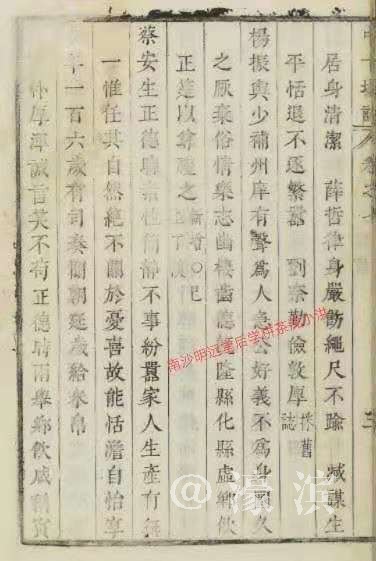 居身清潔　薛哲律身嚴飭繩尺不踰　臧謀生
平恬退不逐繁囂　劉泰勤儉敦厚　舊誌
楊振與少補州庠有聲為人急公好義不為身圖久
之厭棄俗情樂志幽棲齒德達隆縣化縣虛鄉飲
正筵以舉禮之
蔡安生正德 不事紛囂家人生產有無
一惟任其自然絕不關於憂喜故能恬澹自怡享
年一百六歲有司奏聞朝廷歲給米帛
朴厚渾誠言笑不苟正德時兩舉鄉飲咸稱賓
南沙明远 小洪
@濠浜